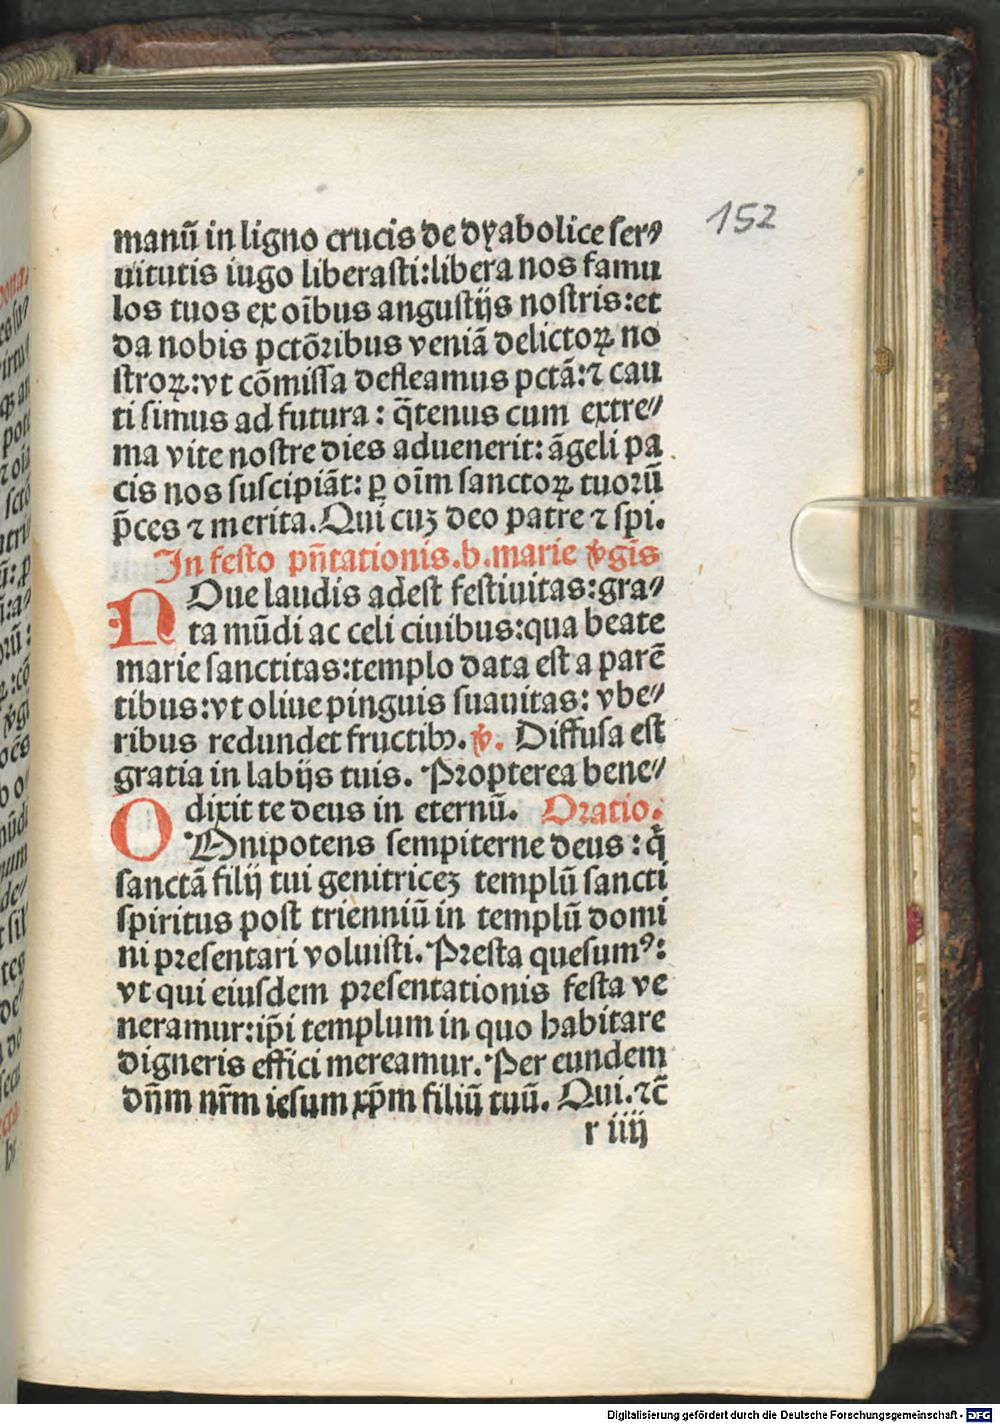 152
manū in ligno crucis de dyabolice ser⸗
uitutis iugo liberasti:libera nos famu
los tuos ex oībus angustijs nostris:et
da nobis pctōribus veniā delictoꝝ no
stroꝝ:vt cōmissa defleamus pctā:⁊ cau
ti simus ad futura: q̄tenus cum extre⸗
ma vite nostre dies aduenerit: āgeli pa
cis nos suscipiāt: ꝑ oīm sanctoꝝ tuorū
p̄ces ⁊ merita. Qui cuꝫ deo patre ⁊ spi.
In festo pn̄tationis.b.marie v̄gīs
NOue laudis adest festiuitas:gra⸗
ta mūdi ac celi ciuibus:qua beate
marie sanctitas:templo data est a parē
tibus:vt oliue pinguis suauitas: vbe⸗
ribus redundet fructibꝰ. ℣. Diffusa est
gratia in labijs tuis. Propterea bene⸗
dixit te deus in eternū. Oratio.
OMnipotens sempiterne deus: q̄
sanctā filij tui genitriceꝫ templū sancti
spiritus post trienniū in templū domi
ni presentari voluisti. Presta quesumꝰ:
vt qui eiusdem presentationis festa ve
neramur:ip̄i templum in quo habitare
digneris effici mereamur. Per eundem
dn̄m nr̄m iesum xp̄m filiū tuū. Qui.⁊c̄
r iiij
Digitalisierung gefördert durch die Deutsche Forschungsgemeinschaft - DFG